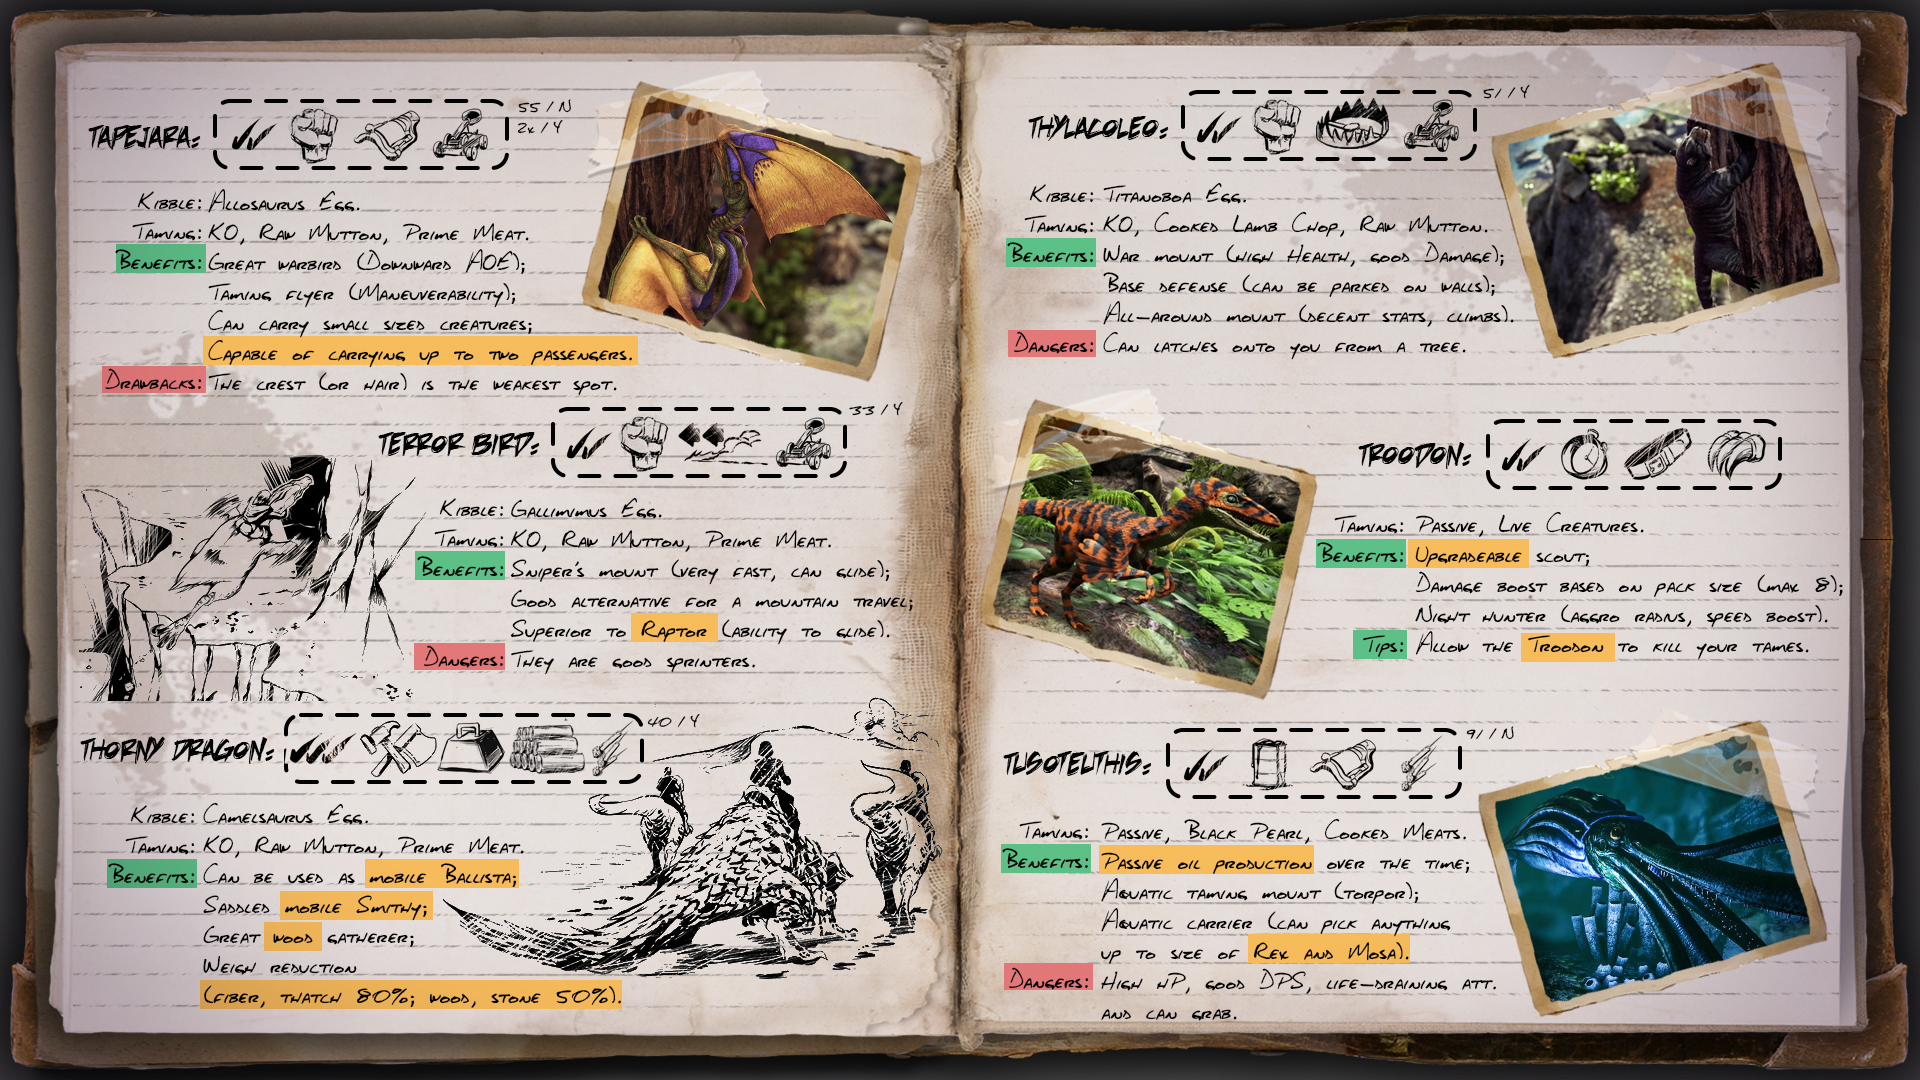 Tapejara:
55 / N
2x / Y
Kibble: Allosaurus Egg.
Taming: KO, Raw Mutton, Prime Meat.
Benefits: Great warbird (Downward AOE);
Taming flyer (Maneuverability);
Can carry small sized creatures;
Capable of carrying up to two passengers.
Drawbacks: The crest (or hair) is the weakest spot.
Terror Bird:
33 / Y
Kibble: Gallimimus Egg.
Taming: KO, Raw Mutton, Prime Meat.
Benefits: Sniper's mount (very fast, can glide);
Good alternative for a mountain travel;
Superior to Raptor (ability to glide).
Dangers: They are good sprinters.
Thorny Dragon:
40 / Y
Kibble: Camelsaurus Egg.
Taming: KO, Raw Mutton, Prime Meat.
Benefits: Can be used as mobile Ballista;
Saddled mobile Smithy;
Great wood gatherer;
Weigh reduction
(fiber, thatch 80%; wood, stone 50%).
Thylacoleo:
51 / Y
Kibble: Titanoboa Egg.
Taming: KO, Cooked Lamb Chop, Raw Mutton.
Benefits: War mount (high Health, good Damage);
Base defense (can be parked on walls);
All-around mount (decent stats, climbs).
Dangers: Can latches onto you from a tree.
Troodon:
Taming: Passive, Live Creatures.
Benefits: Upgradeable scout;
Damage boost based on pack size (max 8);
Night hunter (aggro radius, speed boost).
Tips: Allow the Troodon to kill your tames.
Tusoteuthis:
91 / N
Taming: Passive, Black Pearl, Cooked Meats.
Benefits: Passive oil production over the time;
Aquatic taming mount (torpor);
Aquatic carrier (can pick anything
up to size of Rex and Mosa).
Dangers: High HP, good DPS, life-draining att.
and can grab.